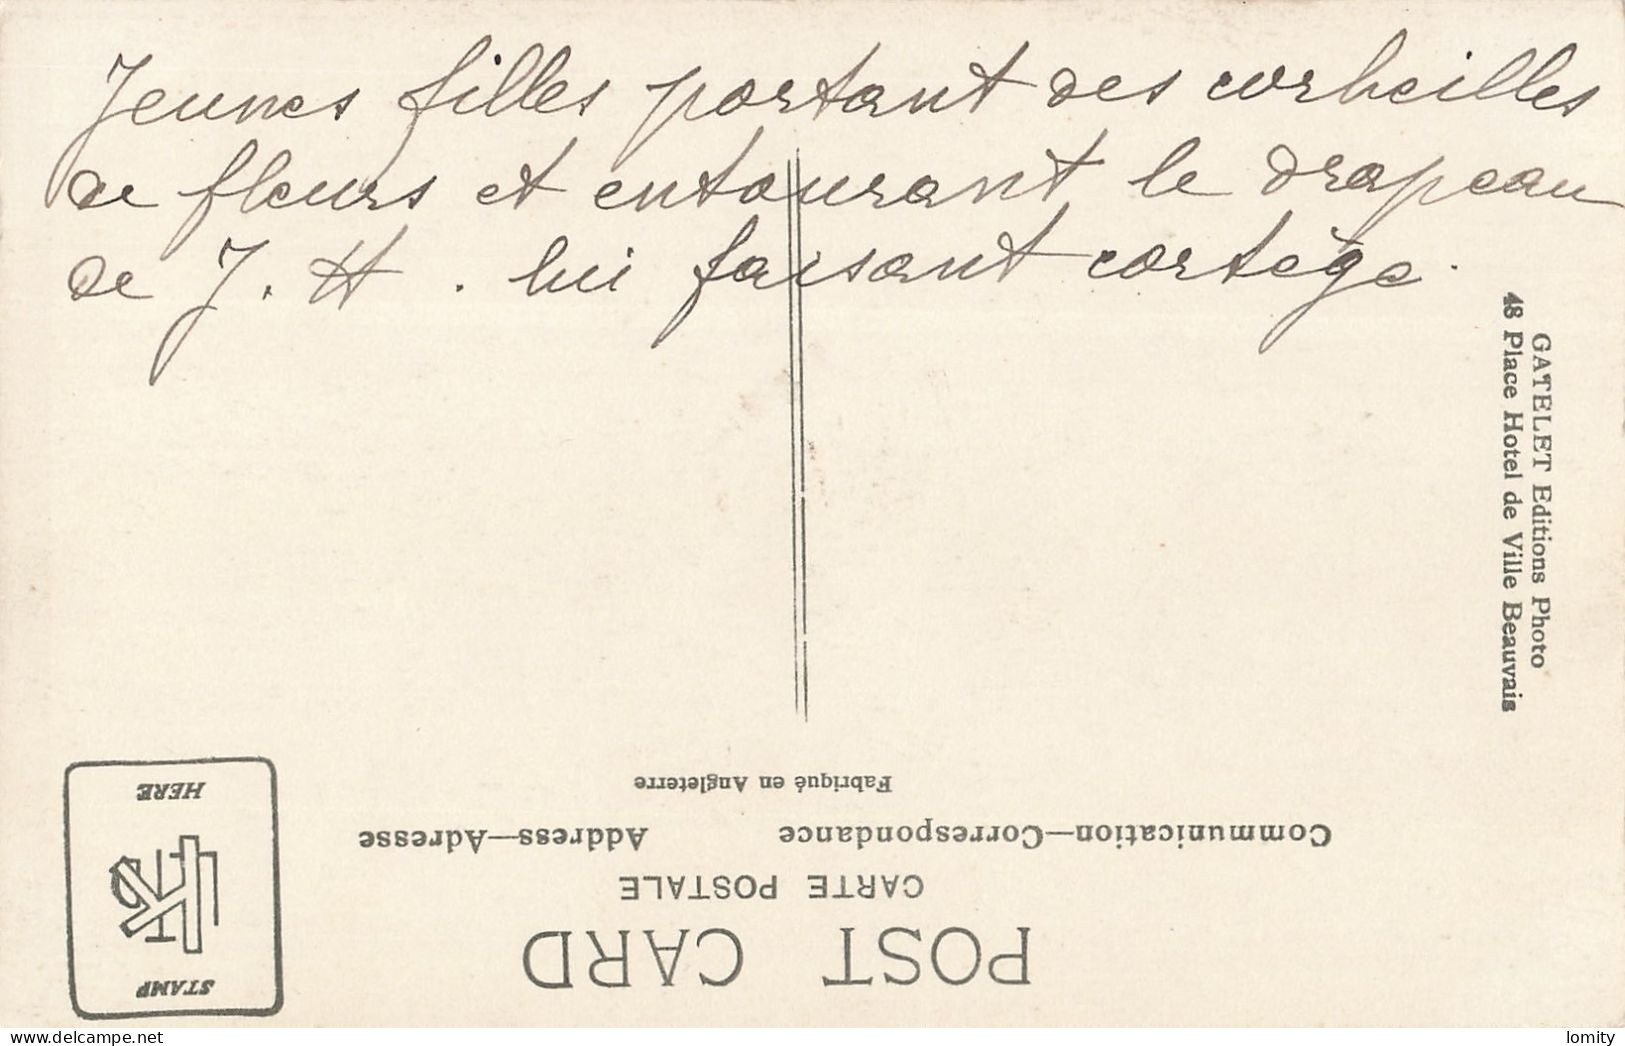 Jeunes filles portant des corbeilles
de fleurs et entourant le drapeau
de J. H. lui faisant cortège.
GATELET Editions Photo
48 Place Hotel de Ville Beauvais
POST CARD
CARTE POSTALE
Communication—Correspondance
Address—Adresse
Fabriqué en Angleterre
STAMP
HERE
delcampe.net
lomity